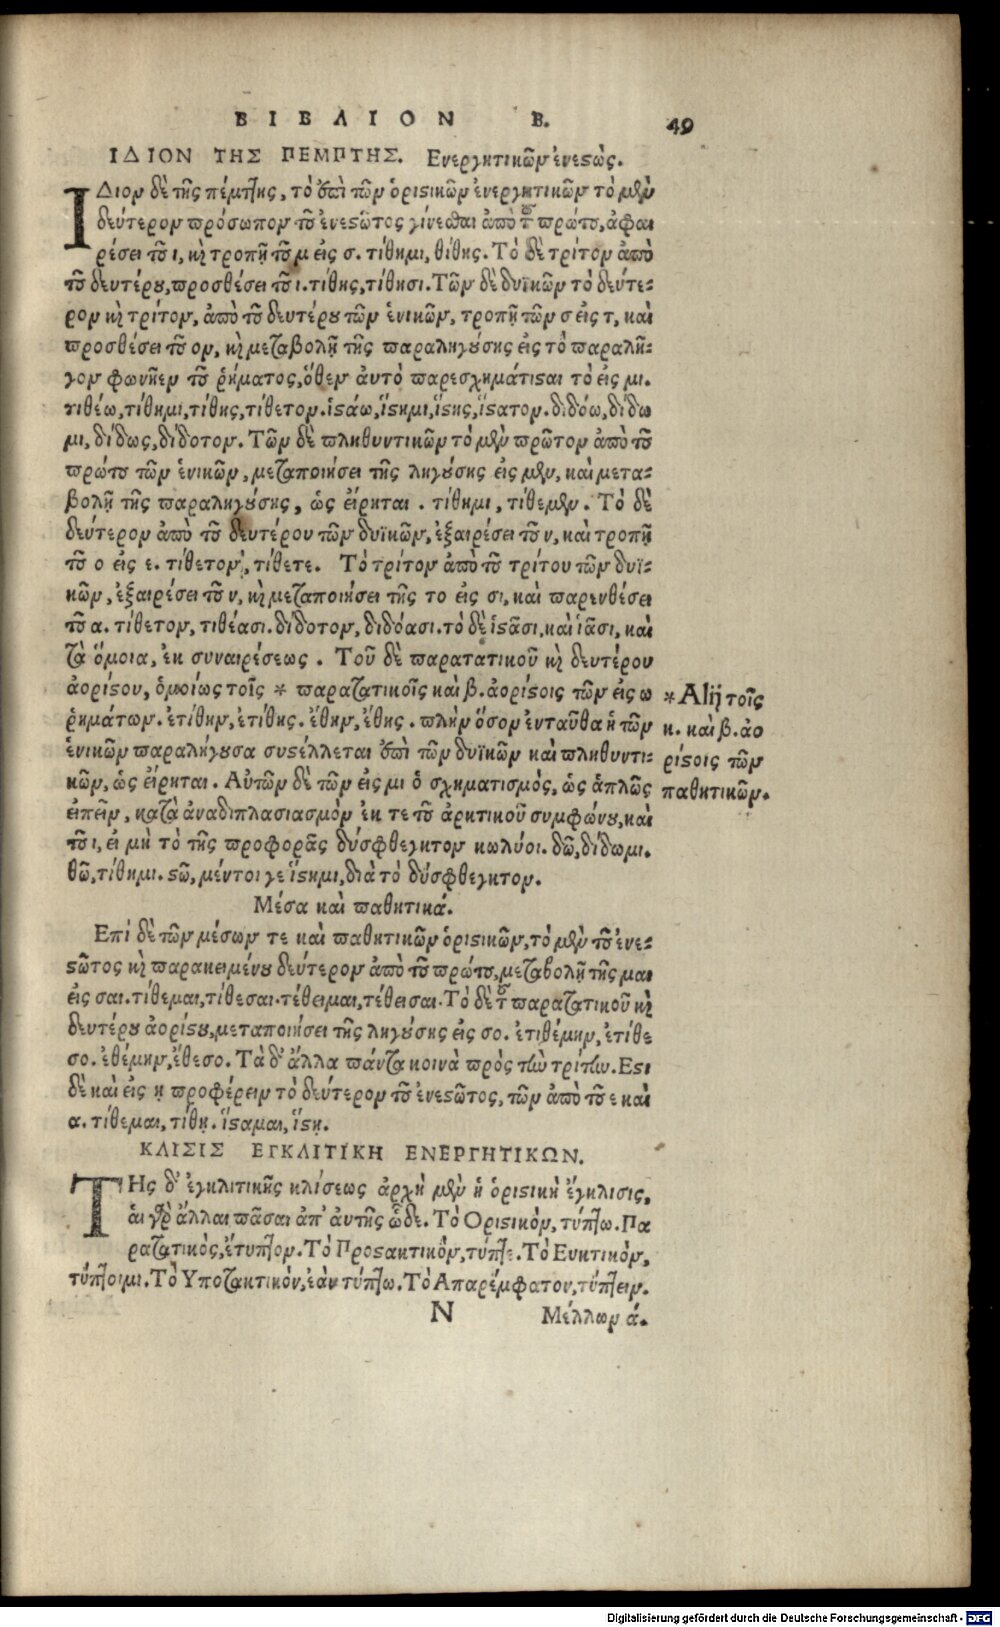 ΒΙΒΛΙΟΝ Β. 49
ΙΔΙΟΝ ΤΗΣ ΠΕΜΠΤΗΣ. Ενεργητικῶν ἐνεστώς.
ΙΔιον δὲ τῆς πέμπτης, τὸ ἐπὶ τῶν ὁριστικῶν ἐνεργητικῶν τὸ μὲν
δεύτερον πρόσωπον τοῦ ἐνεστῶτος γίνεσθαι ἀπὸ τοῦ πρώτου, ἀφαι
ρέσει τοῦ ι, κὴ τροπῇ τοῦ μ εἰς σ. τίθημι, θίθης. Τὸ δὲ τρίτον ἀπὸ
τοῦ δευτέρου, προσθέσει τοῦ ι. τίθης, τίθησι. Τῶν δὲ δυϊκῶν τὸ δεύτε-
ρον κὴ τρίτον, ἀπὸ τοῦ δευτέρου τῶν ἑνικῶν, τροπῇ τῶν σ εἰς τ, καὶ
προσθέσει τοῦ ον, κὴ μεταβολῇ τῆς παραληγούσης εἰς τὸ παραλῆ-
γον φωνῆεν τοῦ ῥήματος, ὅθεν αὐτὸ παρεσχημάτισαι τὸ εἰς μι.
τιθέω, τίθημι, τίθης, τίθετον. ἱστάω, ἵστημι, ἵστης, ἵστατον. διδόω, δίδω
μι, δίδως, δίδοτον. Τῶν δὲ πληθυντικῶν τὸ μὲν πρῶτον ἀπὸ τοῦ
πρώτου τῶν ἑνικῶν, μεταποιήσει τῆς ληγούσης εἰς μεν, καὶ μετα-
βολῇ τῆς παραληγούσης, ὡς εἴρηται. τίθημι, τίθεμεν. Τὸ δὲ
δεύτερον ἀπὸ τοῦ δευτέρου τῶν δυϊκῶν, ἐξαιρέσει τοῦ ν, καὶ τροπῇ
τοῦ ο εἰς ε. τίθετον, τίθετε. Τὸ τρίτον ἀπὸ τοῦ τρίτου τῶν δυϊ-
κῶν, ἐξαιρέσει τοῦ ν, κὴ μεταποιήσει τῆς το εἰς σι, καὶ παρενθέσει
τοῦ α. τίθετον, τιθέασι. δίδοτον, διδόασι. τὸ δὲ ἱστᾶσι, καὶ ἱᾶσι, καὶ
τὰ ὅμοια, ἐκ συναιρέσεως. Τοῦ δὲ παρατατικοῦ κὴ δευτέρου
ἀορίστου, ὁμοίως τοῖς * παρατατικοῖς καὶ β. ἀορίστοις τῶν εἰς ω
ῥημάτων. ἐτίθην, ἐτίθης. ἔθην, ἔθης. πλὴν ὅσον ἐνταῦθα ἡ τῶν
ἑνικῶν παραλήγουσα συστέλλεται ἐπὶ τῶν δυϊκῶν καὶ πληθυντι-
κῶν, ὡς εἴρηται. Αὐτῶν δὲ τῶν εἰς μι ὁ σχηματισμὸς, ὡς ἁπλῶς
εἰπεῖν, κατὰ ἀναδιπλασιασμὸν ἔκ τε τοῦ ἀρκτικοῦ συμφώνου, καὶ
τοῦ ι, εἰ μὴ τὸ τῆς προφορᾶς δύσφθεγκτον κωλύοι. δῶ, δίδωμι.
θῶ, τίθημι. στῶ, μέντοι γε ἵστημι, διὰ τὸ δύσφθεγκτον.
* Alij τοῖς
κ. καὶ β. ἀο
ρίστοις τῶν
παθητικῶν.
Μέσα καὶ παθητικά.
Επὶ δὲ τῶν μέσων τε καὶ παθητικῶν ὁριστικῶν, τὸ μὲν τοῦ ἐνε-
στῶτος κὴ παρακειμένου δεύτερον ἀπὸ τοῦ πρώτου, μεταβολῇ τῆς μαι
εἰς σαι. τίθεμαι, τίθεσαι. τέθειμαι, τέθεισαι. Τὸ δὲ τοῦ παρατατικοῦ κὴ
δευτέρου ἀορίστου, μεταποιήσει τῆς ληγούσης εἰς σο. ἐτιθέμην, ἐτίθε
σο. ἐθέμην, ἔθεσο. Τὰ δ' ἄλλα πάντα κοινὰ πρὸς τὼ τρίτω. Εστι
δὲ καὶ εἰς ῃ προφέρειν τὸ δεύτερον τοῦ ἐνεστῶτος, τῶν ἀπὸ τοῦ ε καὶ
α. τίθεμαι, τίθῃ. ἵσταμαι, ἵστῃ.
ΚΛΙΣΙΣ ΕΓΚΛΙΤΙΚΗ ΕΝΕΡΓΗΤΙΚΩΝ.
ΤΗς δ' ἐγκλιτικῆς κλίσεως ἀρχὴ μὲν ἡ ὁριστικὴ ἔγκλισις,
αἱ γὰρ ἄλλαι πᾶσαι ἀπ' αὐτῆς ὧδε. Τὸ Οριστικὸν, τύπτω. Πα
ρατατικὸς, ἔτυπτον. Τὸ Προστακτικὸν, τύπτε. Τὸ Ευκτικὸν,
τύπτοιμι. Τὸ Υποτακτικὸν, ἐὰν τύπτω. Τὸ Απαρέμφατον, τύπτειν.
N Μέλλων ά.
Digitalisierung gefördert durch die Deutsche Forschungsgemeinschaft - DFG